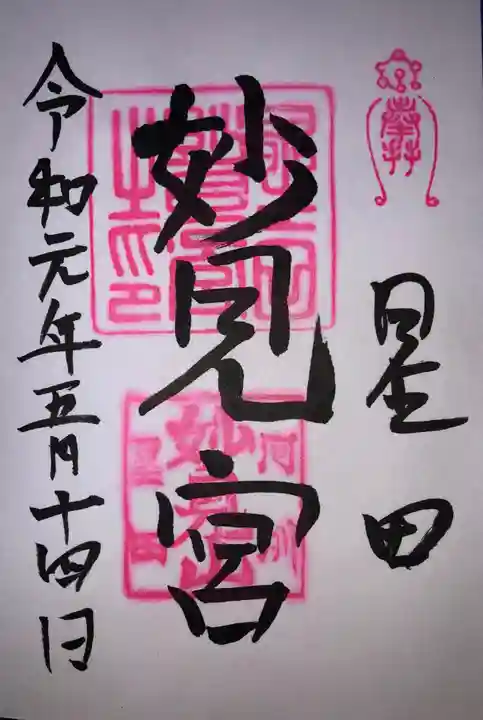 奉拝
星田
妙見宮
河州
妙見山
星田
令和元年五月十四日